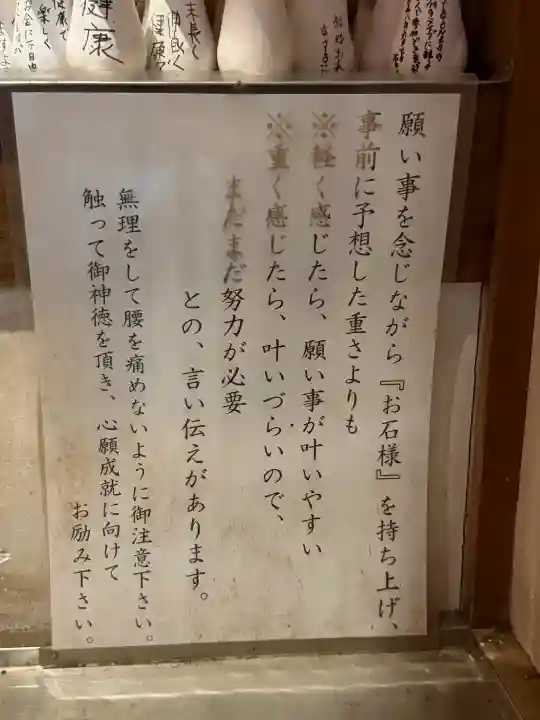 願い事を念じながら『お石様』を持ち上げ、
事前に予想した重さよりも
※軽く感じたら、願い事が叶いやすい
※重く感じたら、叶いづらいので、
まだまだ努力が必要
との、言い伝えがあります。
無理をして腰を痛めないように御注意下さい。
触って御神徳を頂き、心願成就に向けて
お励み下さい。
末長く
仲良く
健康で
健康
健康で
楽しく